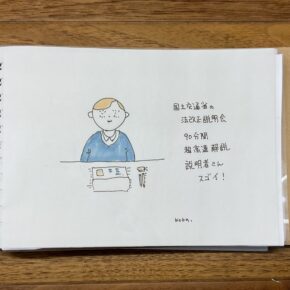 国土交通省の
法改正説明会
90分間
超高速解説
説明者さん
スゴイ!